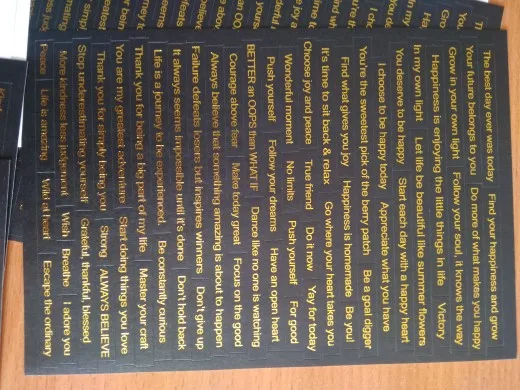 The best day ever was today Find your happiness and grow
Your future belongs to you Do more of what makes you happy
Grow in your own light Follow your soul, it knows the way
Happiness is enjoying the little things in life Victory
In my own light Let life be beautiful like summer flowers
You deserve to be happy Start each day with a happy heart
I choose to be happy today Appreciate what you have
You're the sweetest pick of the berry patch Be a goal digger
Find what gives you joy Happiness is homemade Be you!
It's time to sit back & relax Go where your heart takes you
Choose joy and peace True friend Do it now Yay for today
Wonderful moment No limits Push yourself For good
Push yourself Follow your dreams Have an open heart
BETTER an OOPS then WHAT IF Dance like no one is watching
Courage above fear Make today great Focus on the good
Always believe that something amazing is about to happen
Failure defeats losers but inspires winners Don't give up
It always seems impossible until it's done Don't hold back
Life is a journey to be experienced Be constantly curious
Thank you for being a big part of my life Master your craft
You are my greatest adventure Start doing things you love
Thank you for simply being you Strong ALWAYS BELIEVE
Stop underestimating yourself Grateful, thankful, blessed
More kindness less judgement Wish Breathe I adore you
Peace Life is amazing Wild at heart Escape the ordinary